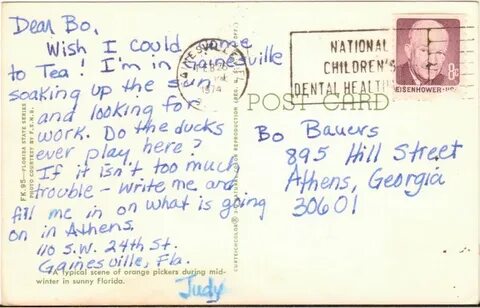 Dear Bo,
Wish I could come
to Tea! I'm in Gainesville
soaking up the sun
and looking for
work. Do the ducks
ever play here?
If it isn't too much
trouble - write me and
fill me in on what is going
on in Athens.
110 S.W. 24th St.
Gainesville, Fla.
Judy
A typical scene of orange pickers during mid-
winter in sunny Florida.
FK.95—FLORIDA STATE SERIES
PHOTO COURTESY BY F.S.N.B.
GAINESVILLE, FL
FEB
1974
NATIONAL
CHILDREN'S
DENTAL HEALTH
EISENHOWER·USA
8c
POST CARD
Bo Bauers
895 Hill Street
Athens, Georgia
30601